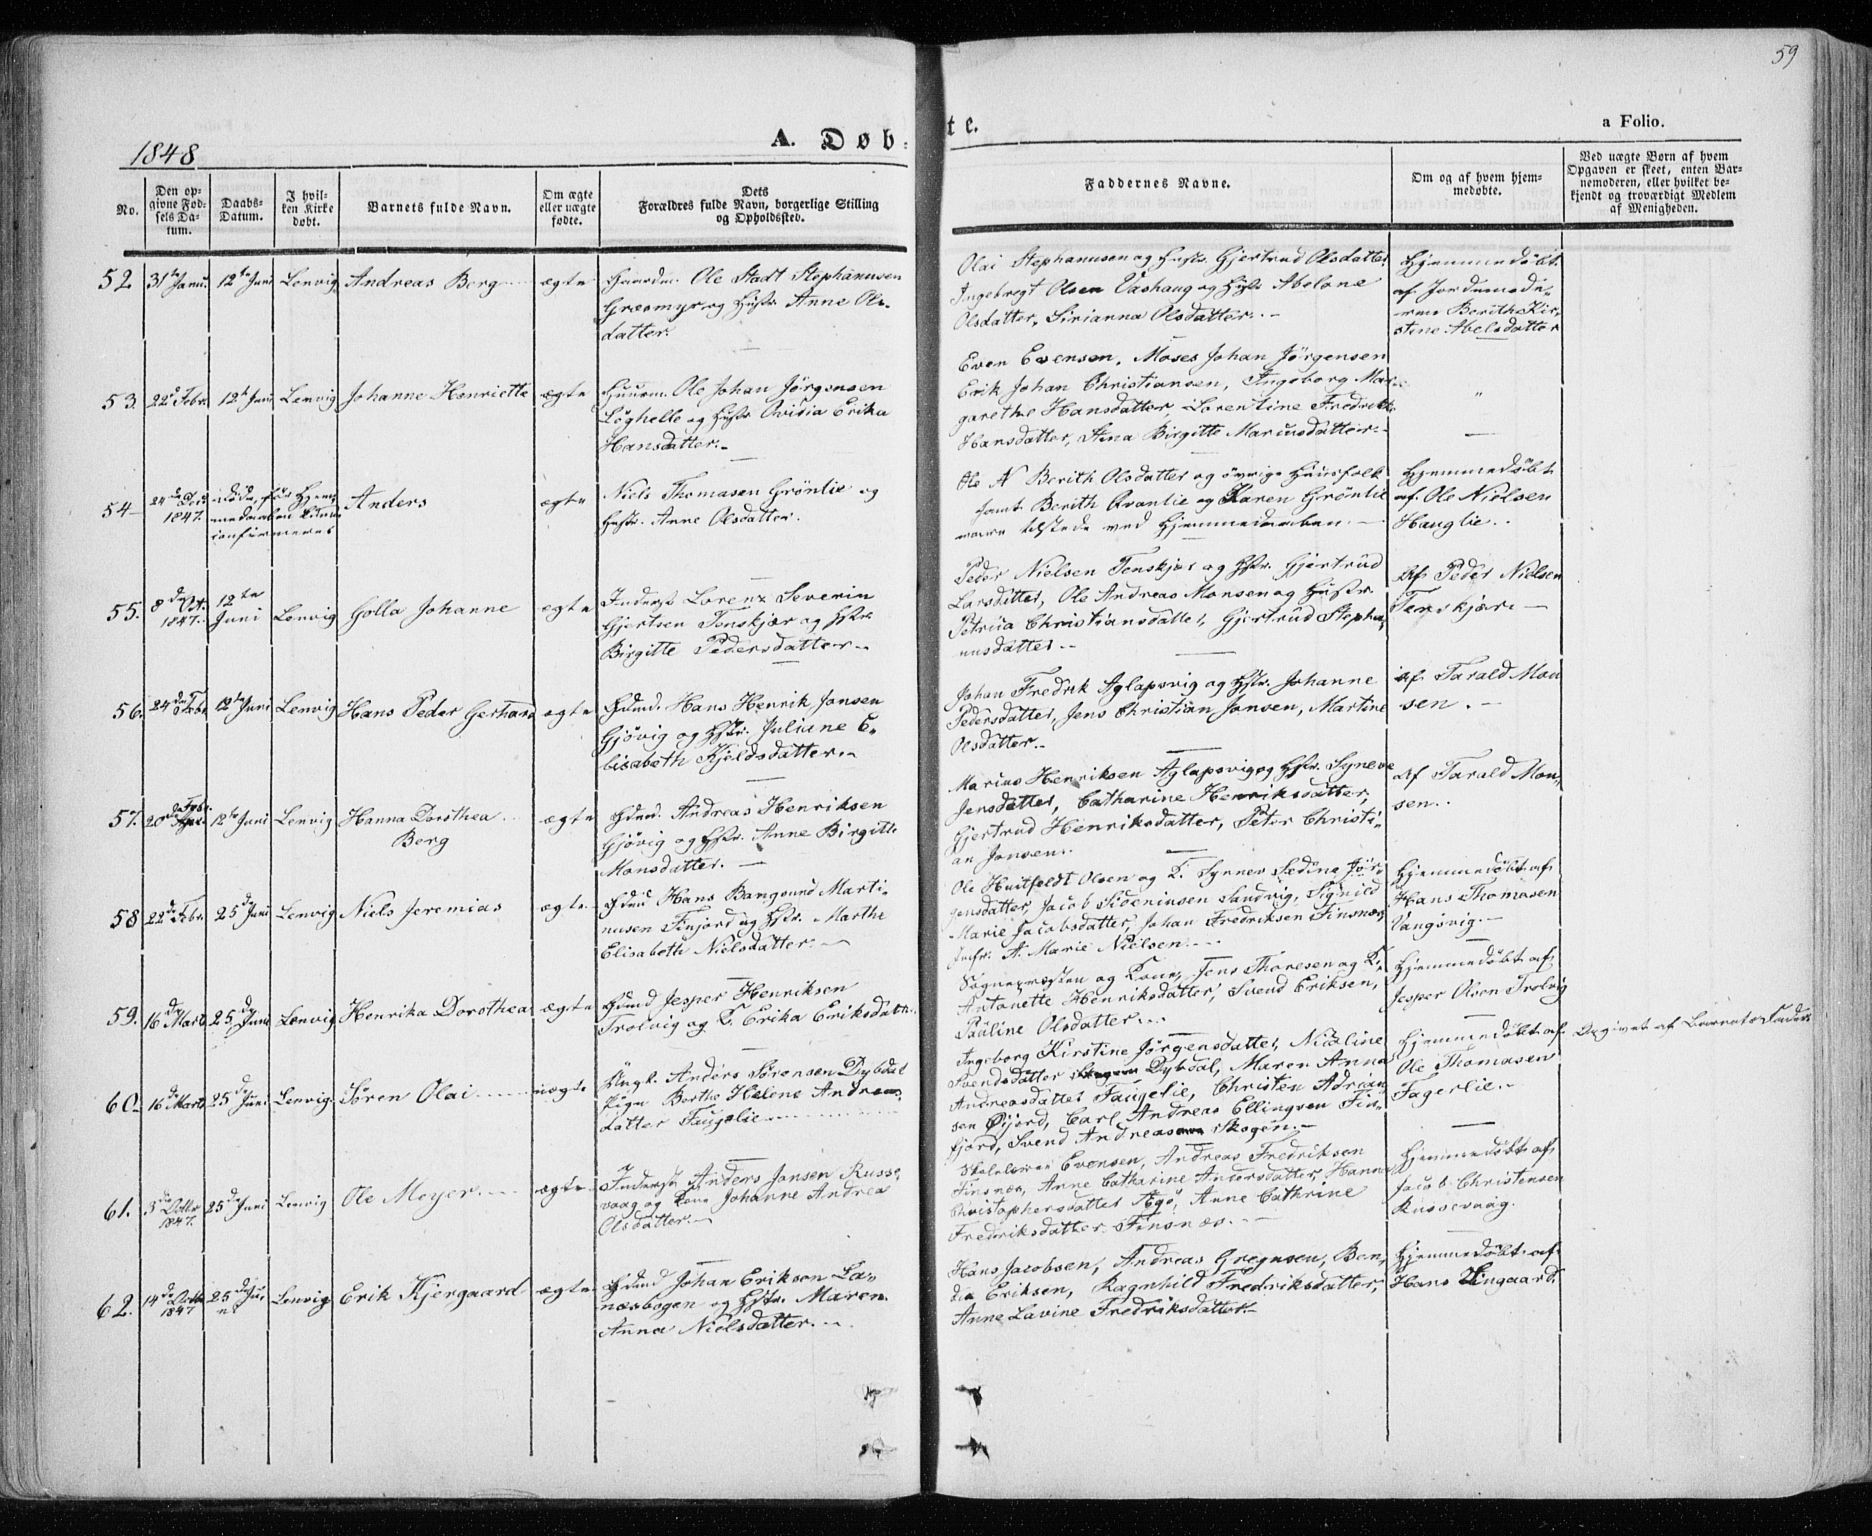 59
1848
A. Døb-
te.
a Folio.
No.
Den op-
givne Fød-
sels Da-
tum.
Daabs-
Datum.
I hvil-
ken Kirke
døbt.
Barnets fulde Navn.
Om ægte
eller uægte
fødte.
Dets
Forældres fulde Navn, borgerlige Stilling
og Opholdssted.
Faddernes Navne.
Om og af hvem hjem-
medøbte.
Ved uægte Børn af hvem
Opgaven er skeet, enten Bar-
nemoderen, eller hvilket be-
kjendt og troværdigt Medlem
af Menigheden.
52
31te Janu.
12te Juni
Lenvig
Andreas Berg
ægte
Ole Stadt Stephanusen
Græsmyr og Hustr. Anne Ols-
datter.
Olai Stephanusen og Hustr. Gjertrud Olsdatter
Ingebregt Olsen Vashaug og Hustr. Abelone
Olsdatter, Sirianna Olsdatter.
Hjemmedøbt
af Jordemode-
ren Berith Kir-
stine Abelsdatter
53.
22de Febr.
12te Juni
Lenvig
Johanne Henriette
ægte
Huusm. Ole Johan Jørgensen
Løghelle og Hustr. Ovidia Erika
Hansdatter.
Even Evensen, Moses Johan Jørgensen
Erik Johan Christiansen, Ingeborg Mar-
garethe Hansdatter, Lorentine Fredrikke
Hansdatter, Stina Birgitte Mariusdatter.
"
54
24de Dec.
1847.
døde, før Hjem-
medaaben kunne
confirmeres
Anders
ægte
Niels Thomasen Grønlie og
Hustr. Anne Olsdatter.
Ole N Berith Olsdatter og øvrige Huusfolk
samt Berith Kvanlie og Karen Grønlie
vare tilstede ved Hjemmedaaben.
Hjemmedøbt
af Ole Nielsen
Hauglie.
55.
8de Oct.
1847.
12te
Juni
Lenvig
Golla Johanne
ægte
Inderst Lorenz Severin
Gjertsen Tenskjær og Hstr.
Birgitte Pedersdatter.
Peder Nielsen Tenskjær og Hstr. Gjertrud
Larsdatter, Ole Andreas Monsen og Hustr
Petrua Christiansdatter, Gjertrud Stepha-
nusdatter.
Af Peder Nielsen
Tenskjær.
56.
24de Febr.
12te Juni
Lenvig
Hans Peder Gerhard
ægte
Hans Henrik Jansen
Gjøvig og Hstr. Juliane E-
lisabeth Kjeldsdatter.
Johan Fredrik Aglapsvig og Hstr. Johanne
Pedersdatter, Jens Christian Jansen, Martine
Olsdatter.
Af Tarald Mon
sen.
57.
20de Febr.
12te Juni
Lenvig
Hanna Dorothea
Berg
ægte
Andreas Henriksen
Gjøvig og Hstr. Anne Birgitte
Monsdatter.
Marius Henriksen Aglapsvig og Hstr. Synneve
Jensdatter, Catharine Henriksdatter,
Gjertrud Henriksdatter, Peter Christi-
an Jansen.
Af Tarald Mon-
sen.
58
22de Febr.
25de Juni
Lenvig
Niels Jeremias
ægte
Hans Bangsund Marti-
nusen Finjord og Hstr. Marthe
Elisabeth Nielsdatter.
Ole Huitfeldt Olsen og K. Synnev Sedina Jør-
gensdatter, Jacob Sideniusen Sandvig, Signild
Marie Jacobsdatter, Johan Fredriksen Finsnæs
Jnfr. A. Marie Nielsen.
Hjemmedøbt af
Hans Thomasen
Vangsvig.
59.
16de Marts
25de Juni
Lenvig
Henrika Dorothea
ægte
Jesper Henriksen
Trolvig og K. Erika Eriksdatter.
Sognepræsten og Kone, Jens Thoresen og K.
Antonette Henriksdatter, Svend Eriksen,
Pauline Olsdatter.
Hjemmedøbt af
Jesper Olsen Trolvig
60.
16de Marts
25de Juni
Lenvig
Søren Olai
uægte
Ungk. Anders Sørensen Dybdal
Pige Berthe Helene Andreas-
datter Faugelie
Ingeborg Kirstine Jørgensdatter, Nicoline
Svendsdatter Dybdal, Maren Anna
Andreasdatter Faugelie, Christen Adrean
sen Øijord, Carl Andreas Ellingsen Fin-
fjord, Svend Andreas Skogen.
Hjemmedøbt af
Ole Thomasen
Fagerlie.
Opgivet af Barnets Fader
61.
3de Octbr
1847.
25de Juni
Lenvig
Ole Meyer
ægte
Inderst Anders Jansen Russe-
vaag og Kone Johanne Andrea
Olsdatter.
Skolelærer Evensen, Andreas Fredriksen
Finsnæs, Anne Catharine Andersdatter, Hanna
Christophersdatter, Anne Cathrine
Fredriksdatter Finsnæs.
Hjemmedøbt af
Jacob Christensen
Russevaag.
62.
14de Octbr
1847
25de Ju-
ni
Lenvig
Erik Kjergaard
ægte
Johan Erikson La-
næsbogen og Hstr. Maren
Anna Nielsdatter.
Hans Jacobsen, Andreas Gregusen, Ben-
dix Eriksen, Ragnhild Fredriksdatter,
Anne Lavine Fredriksdatter
Hjemmedøbt af
Hans Lingaard.